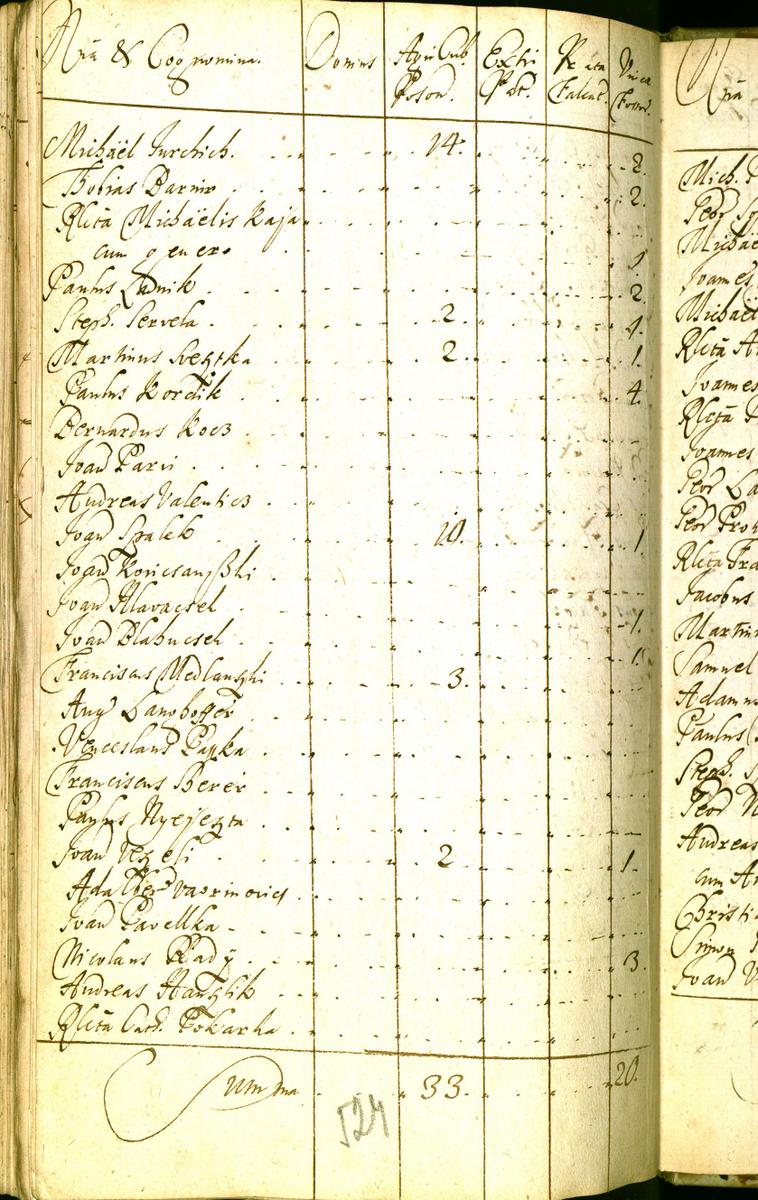 Nra & Cognomina. Domus Agri Cub. Poson. Extir. Prat. Prata Falcat. Vinea Fossor.
Michaël Jurchich. 14. 2.
Tobias Darnir 2.
Rlicta Michaëlis Kaja
cum genero 1
Paulus Zadnik 2.
Steph. Servela. 2 1.
Martinus Svezka 2. 1.
Paulus Kordik 4.
Bernardus Kocz
Joan Parii
Andreas Valenticz
Joan Spalek 10. 1
Joan
Joan Hlavacsek 1.
Joan Blahucsek 1.
Franciscus Medlanszki 3.
Lanohoffer
Venceslaus Papka
Franciscus Berér
Paulus
Joan Vezeli 2 1.
Adalber Vavrinovics
Joan Pavelka
Nicolaus Rady 3.
Andreas Hanzlik
Rlicta Cath. Pokarha
Summa 33. 20.
524
Mich.
Petr
Michaë
Joannes
Michaël
Rlicta A
Joannes
Rlicta
Joannes
Petr La
Petr Pro
Rlicta Fra
Jacobus
Martin
Samuel
Adamu
Paulus
Steph.
Petr N
Andreas
cum An
Christi
Simon
Joan V